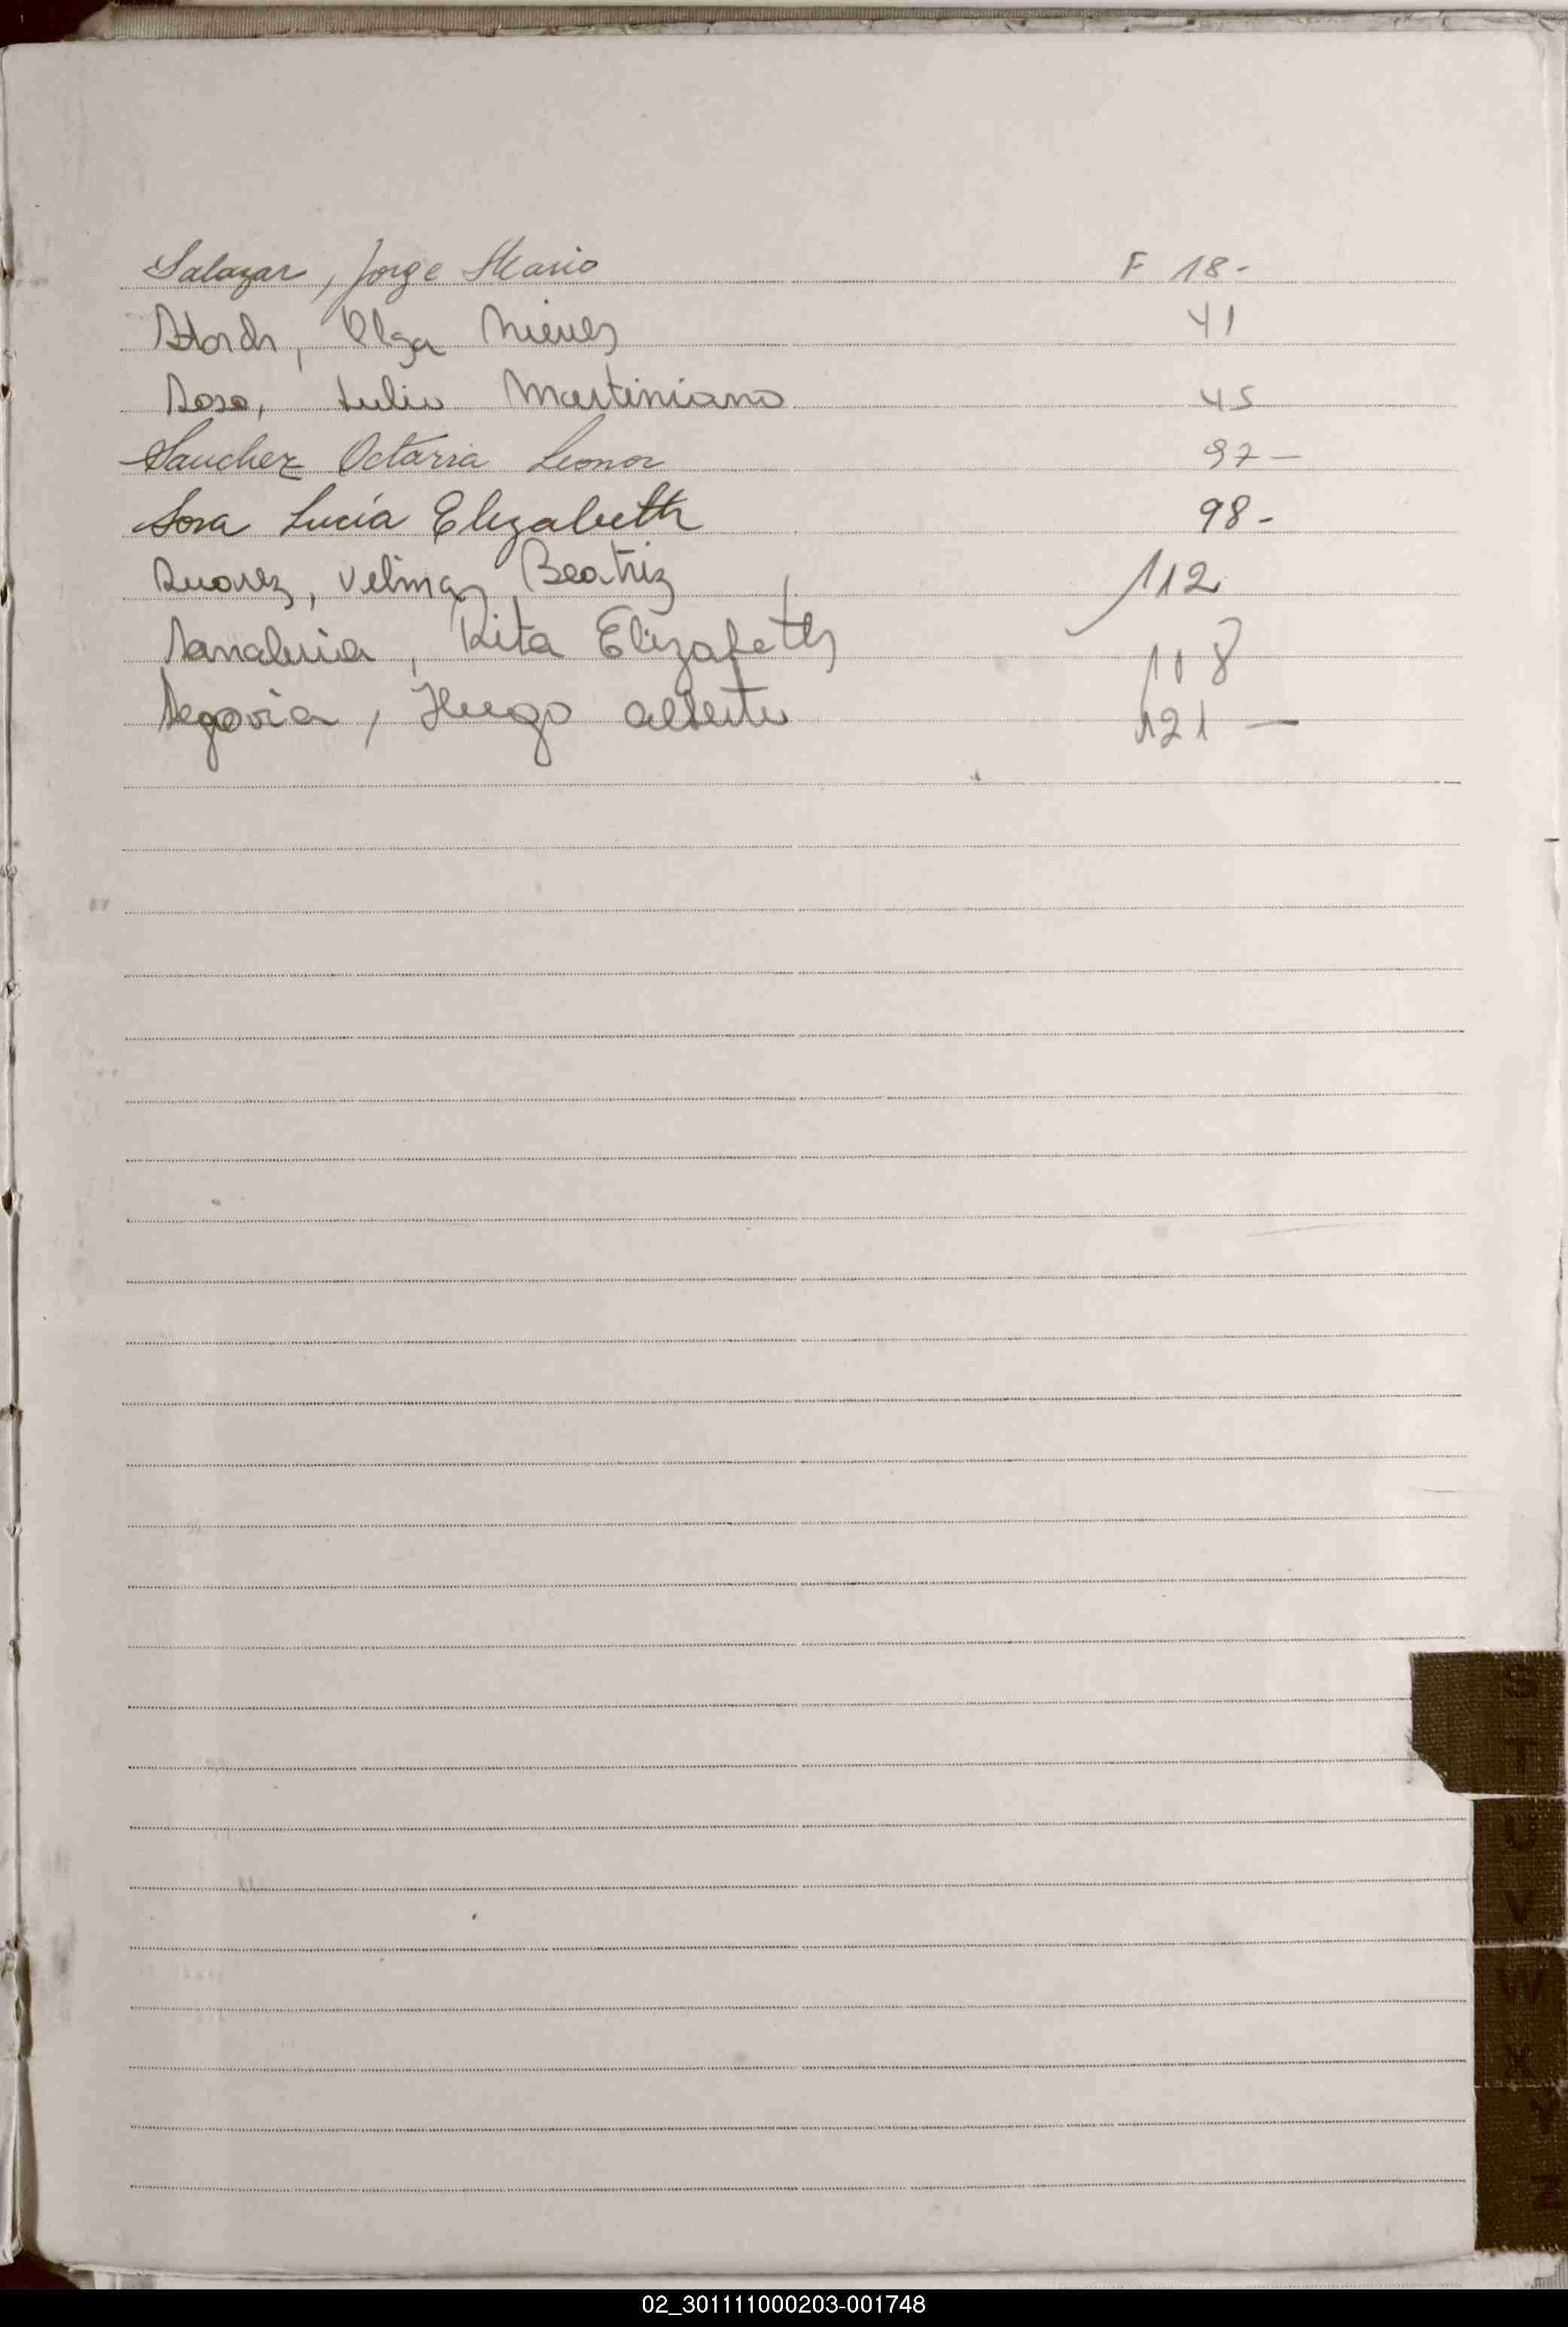 Salazar, Jorge Mario F 18-
Olga Nieves 41
Soso, Julio Martiniano 45
Sanchez Octavia Leonor 97-
Sosa Lucía Elizabeth 98-
Suarez, Velma Beatriz 112
Sanabria, Rita Elizabeth 118
Segovia, Hugo Alberto 121 —
S
T
U
V
W
X
Y
Z
02_301111000203-001748